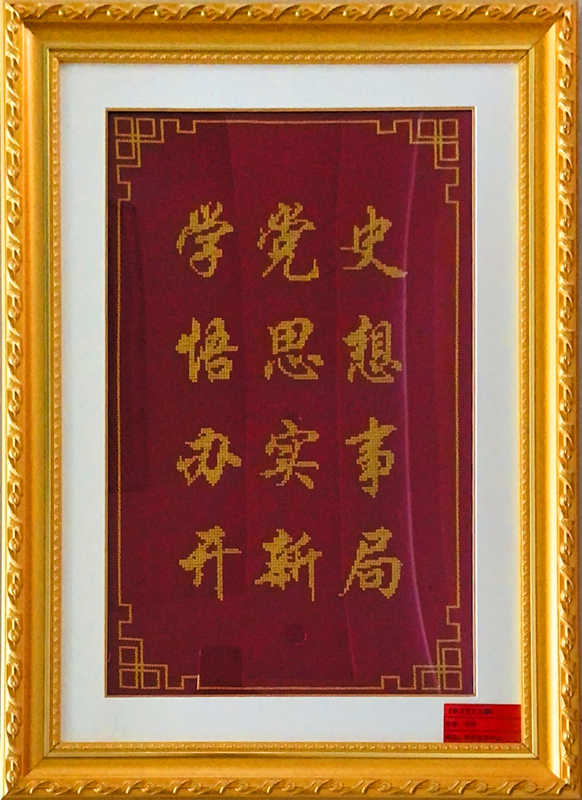 学党史
悟思想
办实事
开新局